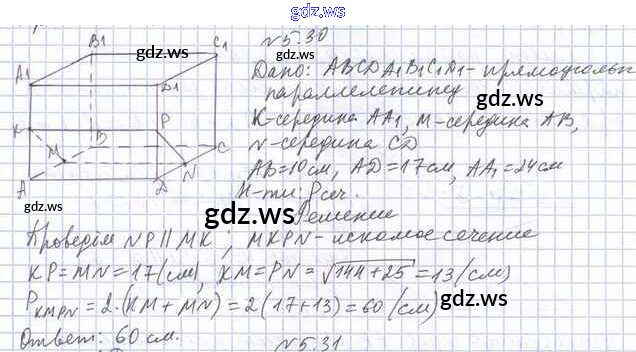 gdz.ws
№5.30
Дано: ABCDA1B1C1D1 - прямоугольн
параллелепипед
K-середина AA1, M-середина AB,
N-середина CD
AB=10см, AD=17см, AA1=24см
Н-ти: Pсеч.
Решение
Проведём NP || MK; MKPN-искомое сечение
KP=MN=17(см), KM=PN=√144+25=13(см)
PKMPN=2·(KM+MN)=2(17+13)=60(см)
Ответ: 60 см.
№5.31
B1
C1
A1
D1
K
P
B
C
M
N
A
D
gdz.ws
gdz.ws
gdz.ws
gdz.ws
gdz.ws
gdz.ws
gdz.ws
gdz.ws